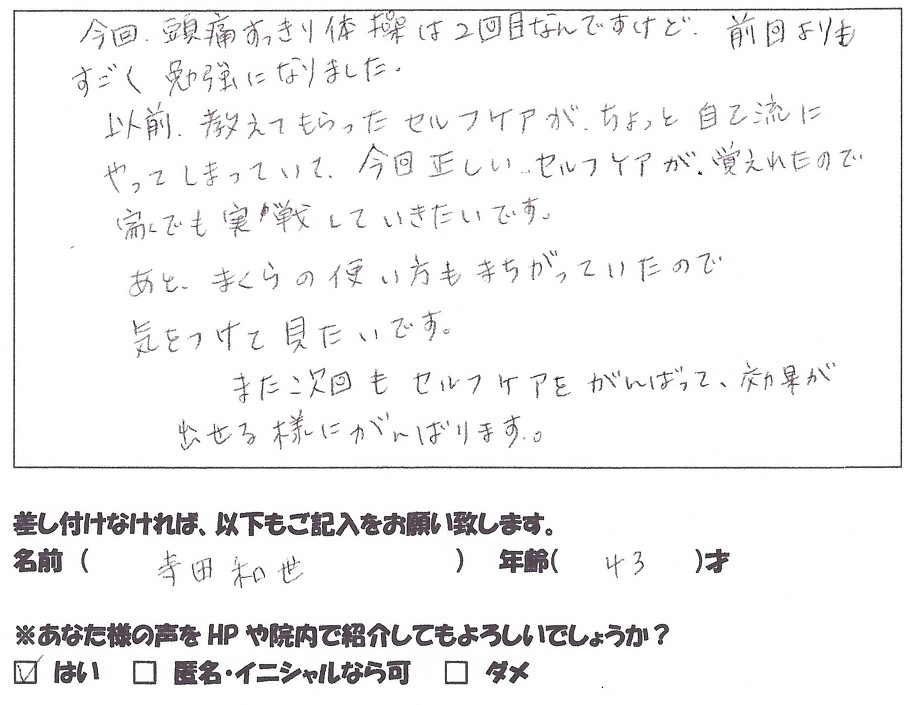 今回、頭痛すっきり体操は2回目なんですけど、前回よりも
すごく勉強になりました。
以前、教えてもらったセルフケアが、ちょっと自己流に
やってしまっていて、今回正しいセルフケアが、覚えれたので
家でも実戦していきたいです。
あと、まくらの使い方もまちがっていたので
気をつけて見たいです。
また次回もセルフケアをがんばって、効果が
出せる様にがんばります。
差し付けなければ、以下もご記入をお願い致します。
名前 ( 寺田和世 ) 年齢( 43 )才
※あなた様の声をHPや院内で紹介してもよろしいでしょうか?
☑ はい □ 匿名・イニシャルなら可 □ ダメ